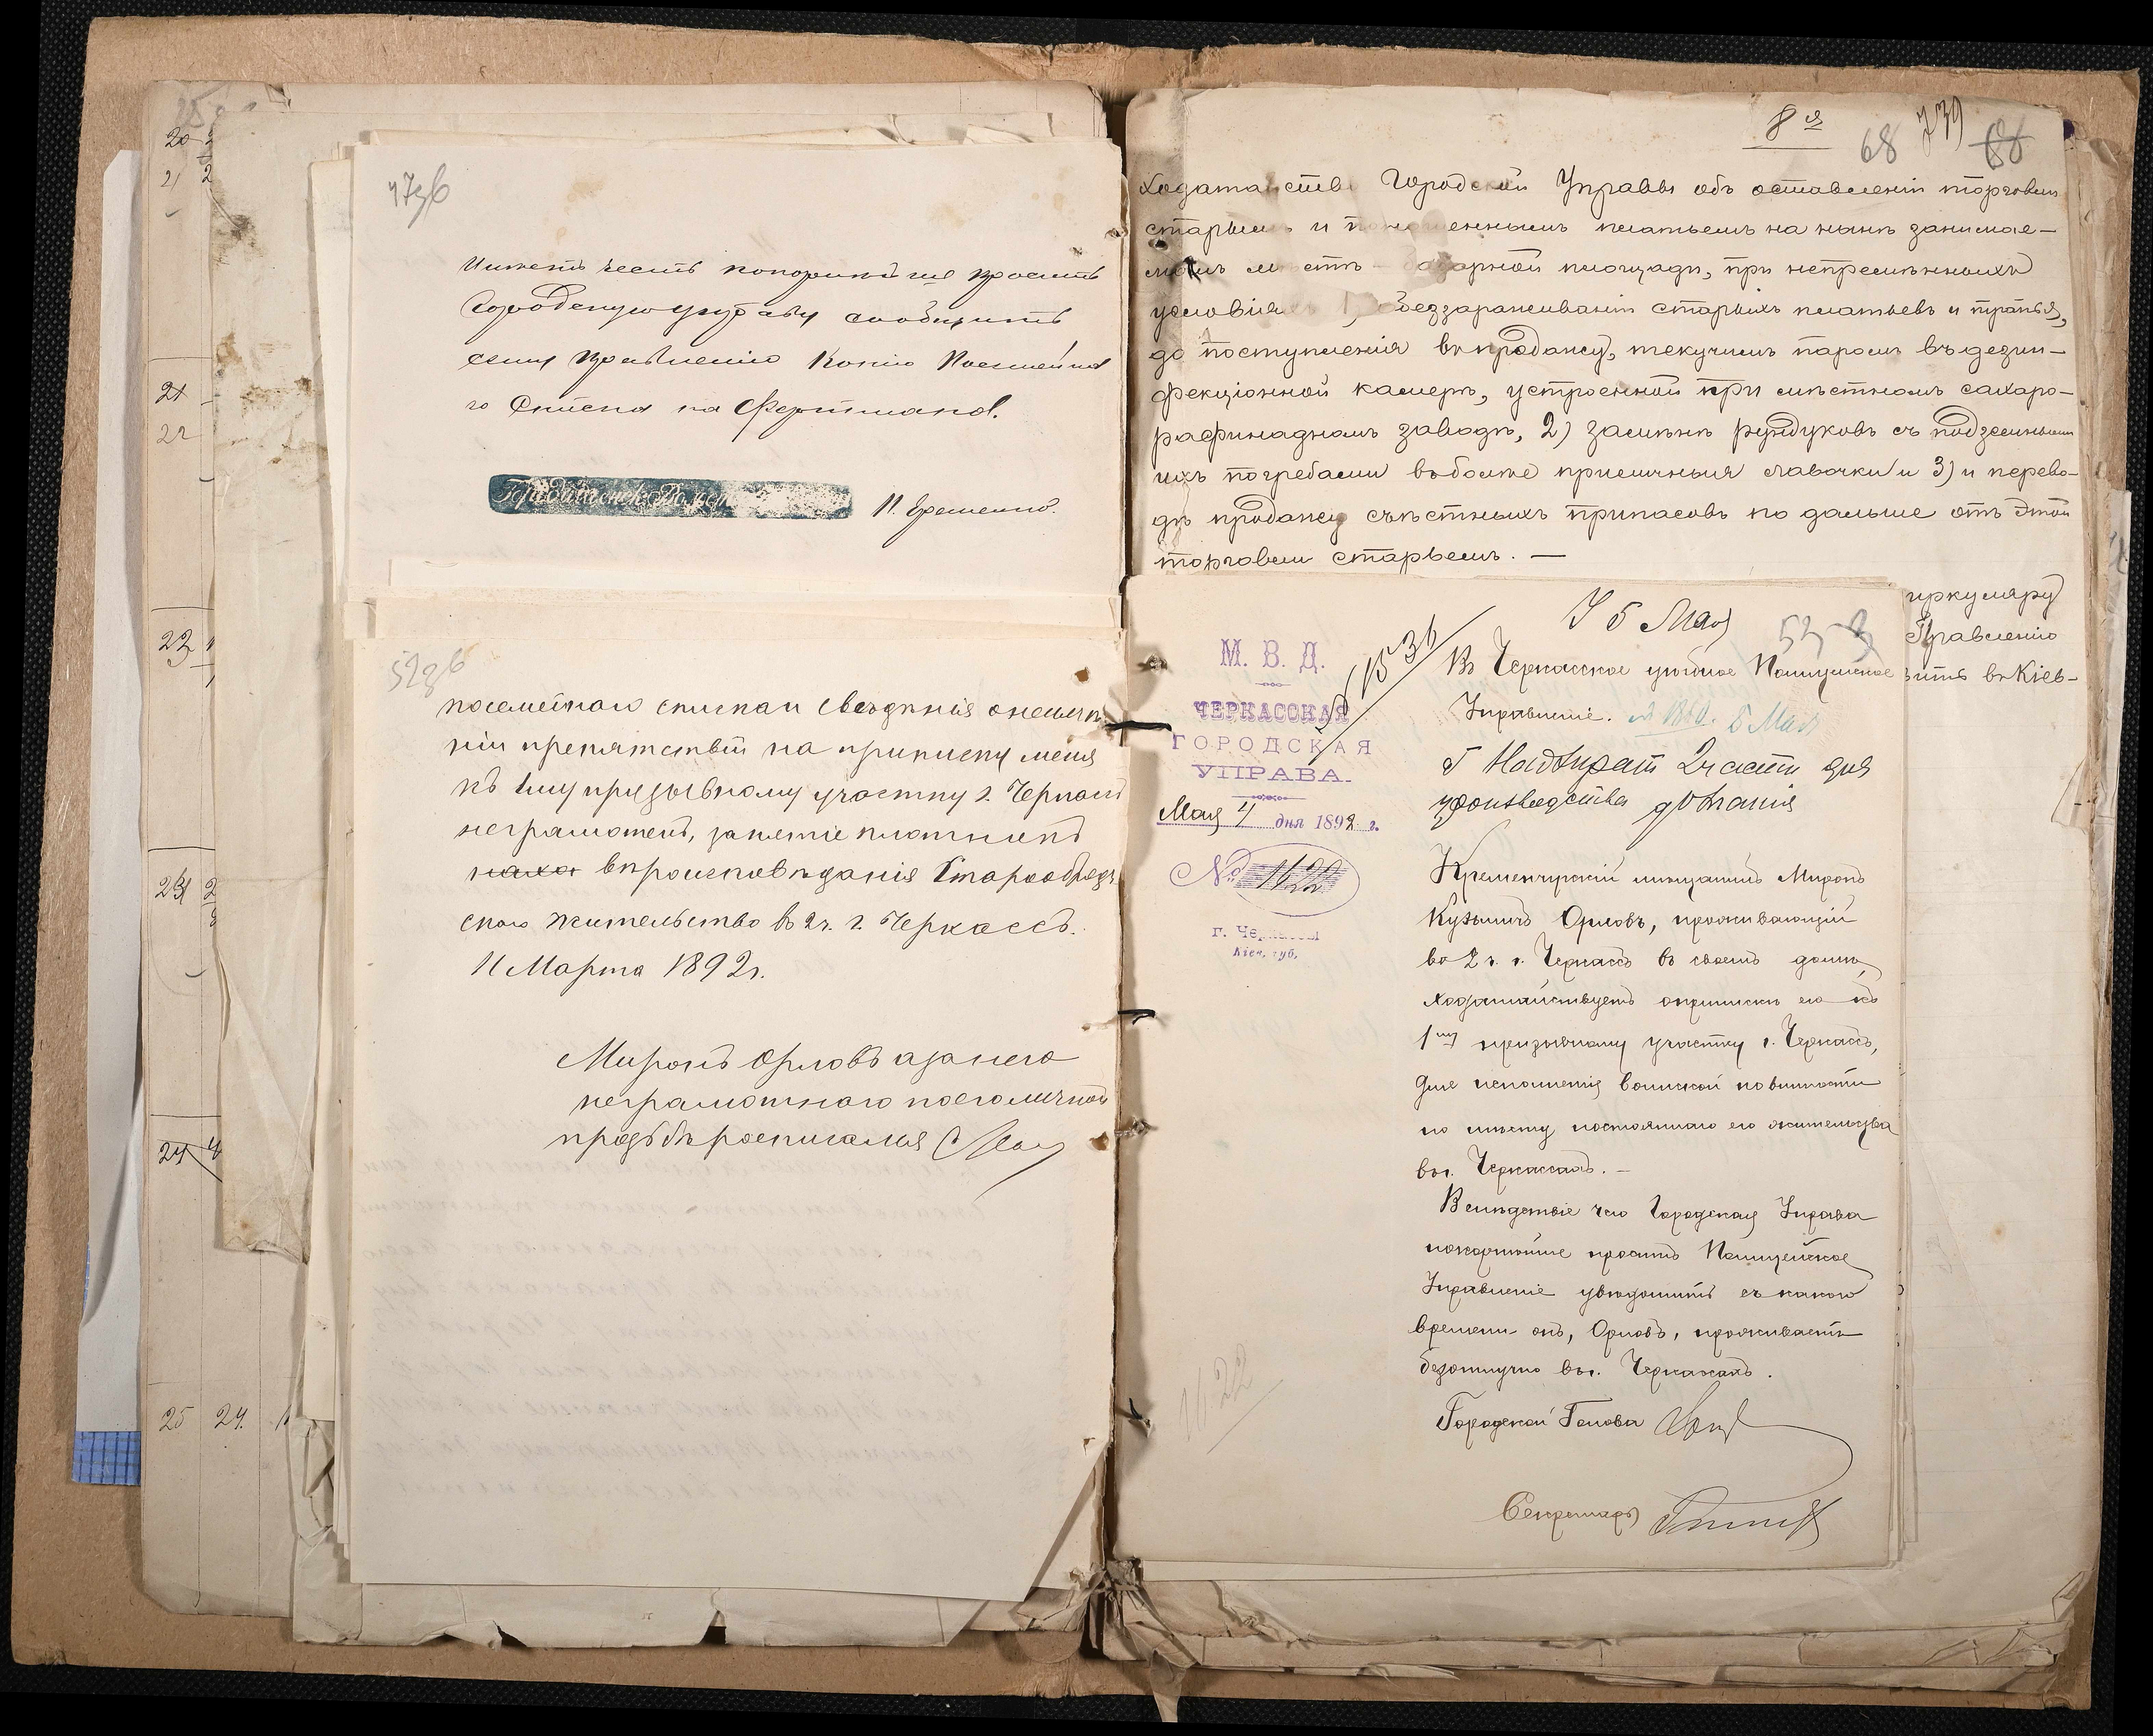 20
21
21
22
23
24
25 24.
47зв
Имѣетъ честь покорнѣйше просить
Городскую Управу сообщить
сему Правленію копію посемейна
го списка на
52зв
посемейнаго списка и свѣдѣнія о неимѣ
ніи препятствій на приписку меня
къ 1му призывному участку г. Черкассъ
неграмотенъ, занятіе плотникъ
вѣроисповѣданія Старообряд
скаго жительство во 2ч. г. Черкассъ.
11 Марта 1892г.
Миронъ Орловъ а за него
неграмотнаго по его личной
прозьбѣ росписался
8я
68 739 68
ходатайство Городской Управы объ оставленіи торговли
старьемъ и поношеннымъ платьемъ на нынѣ занимае-
момъ мѣстѣ - базарной площади, при непремѣнныхъ
условіяхъ 1) обеззараживаніи старыхъ платьевъ и тряпья,
до поступленія въ продажу, текучимъ паромъ въ дезин-
фекціонной камерѣ, устроенной при мѣстномъ сахаро-
рафинадномъ заводѣ, 2) замѣнѣ рундуковъ съ подземными
ихъ погребами въ болѣе приличныя лавочки и 3) и перево-
дѣ продажи съѣстныхъ припасовъ по дальше отъ этой
торговли старьемъ. —
иркуляру
Правленію
вить въ Кіев-
5 Мая
М. В. Д.
ЧЕРКАССКАЯ
ГОРОДСКАЯ
УПРАВА.
Мая 4 дня 1892 г.
№ 1622
г. Черкассы
Кіев. губ.
1622
Въ Черкасское уѣздное Полицейское
Управленіе.
Г Надзират 2 части для
производства дознанія
Кременчугскій мѣщанинъ Миронъ
Кузьмичъ Орловъ, проживающій
во 2 ч. г. Черкассъ въ своемъ домѣ,
ходатайствуетъ о припискѣ его къ
1му призывному участку г. Черкассъ,
для исполненія воинской повинности
по мѣсту постояннаго его жительства
въ г. Черкассахъ. —
Вслѣдствіе чего Городская Управа
покорнѣйше проситъ Полицейское
Управленіе увѣдомить съ какого
времени онъ, Орловъ, проживаетъ
безотлучно въ г. Черкассахъ.
Городской Голова
Секретарь